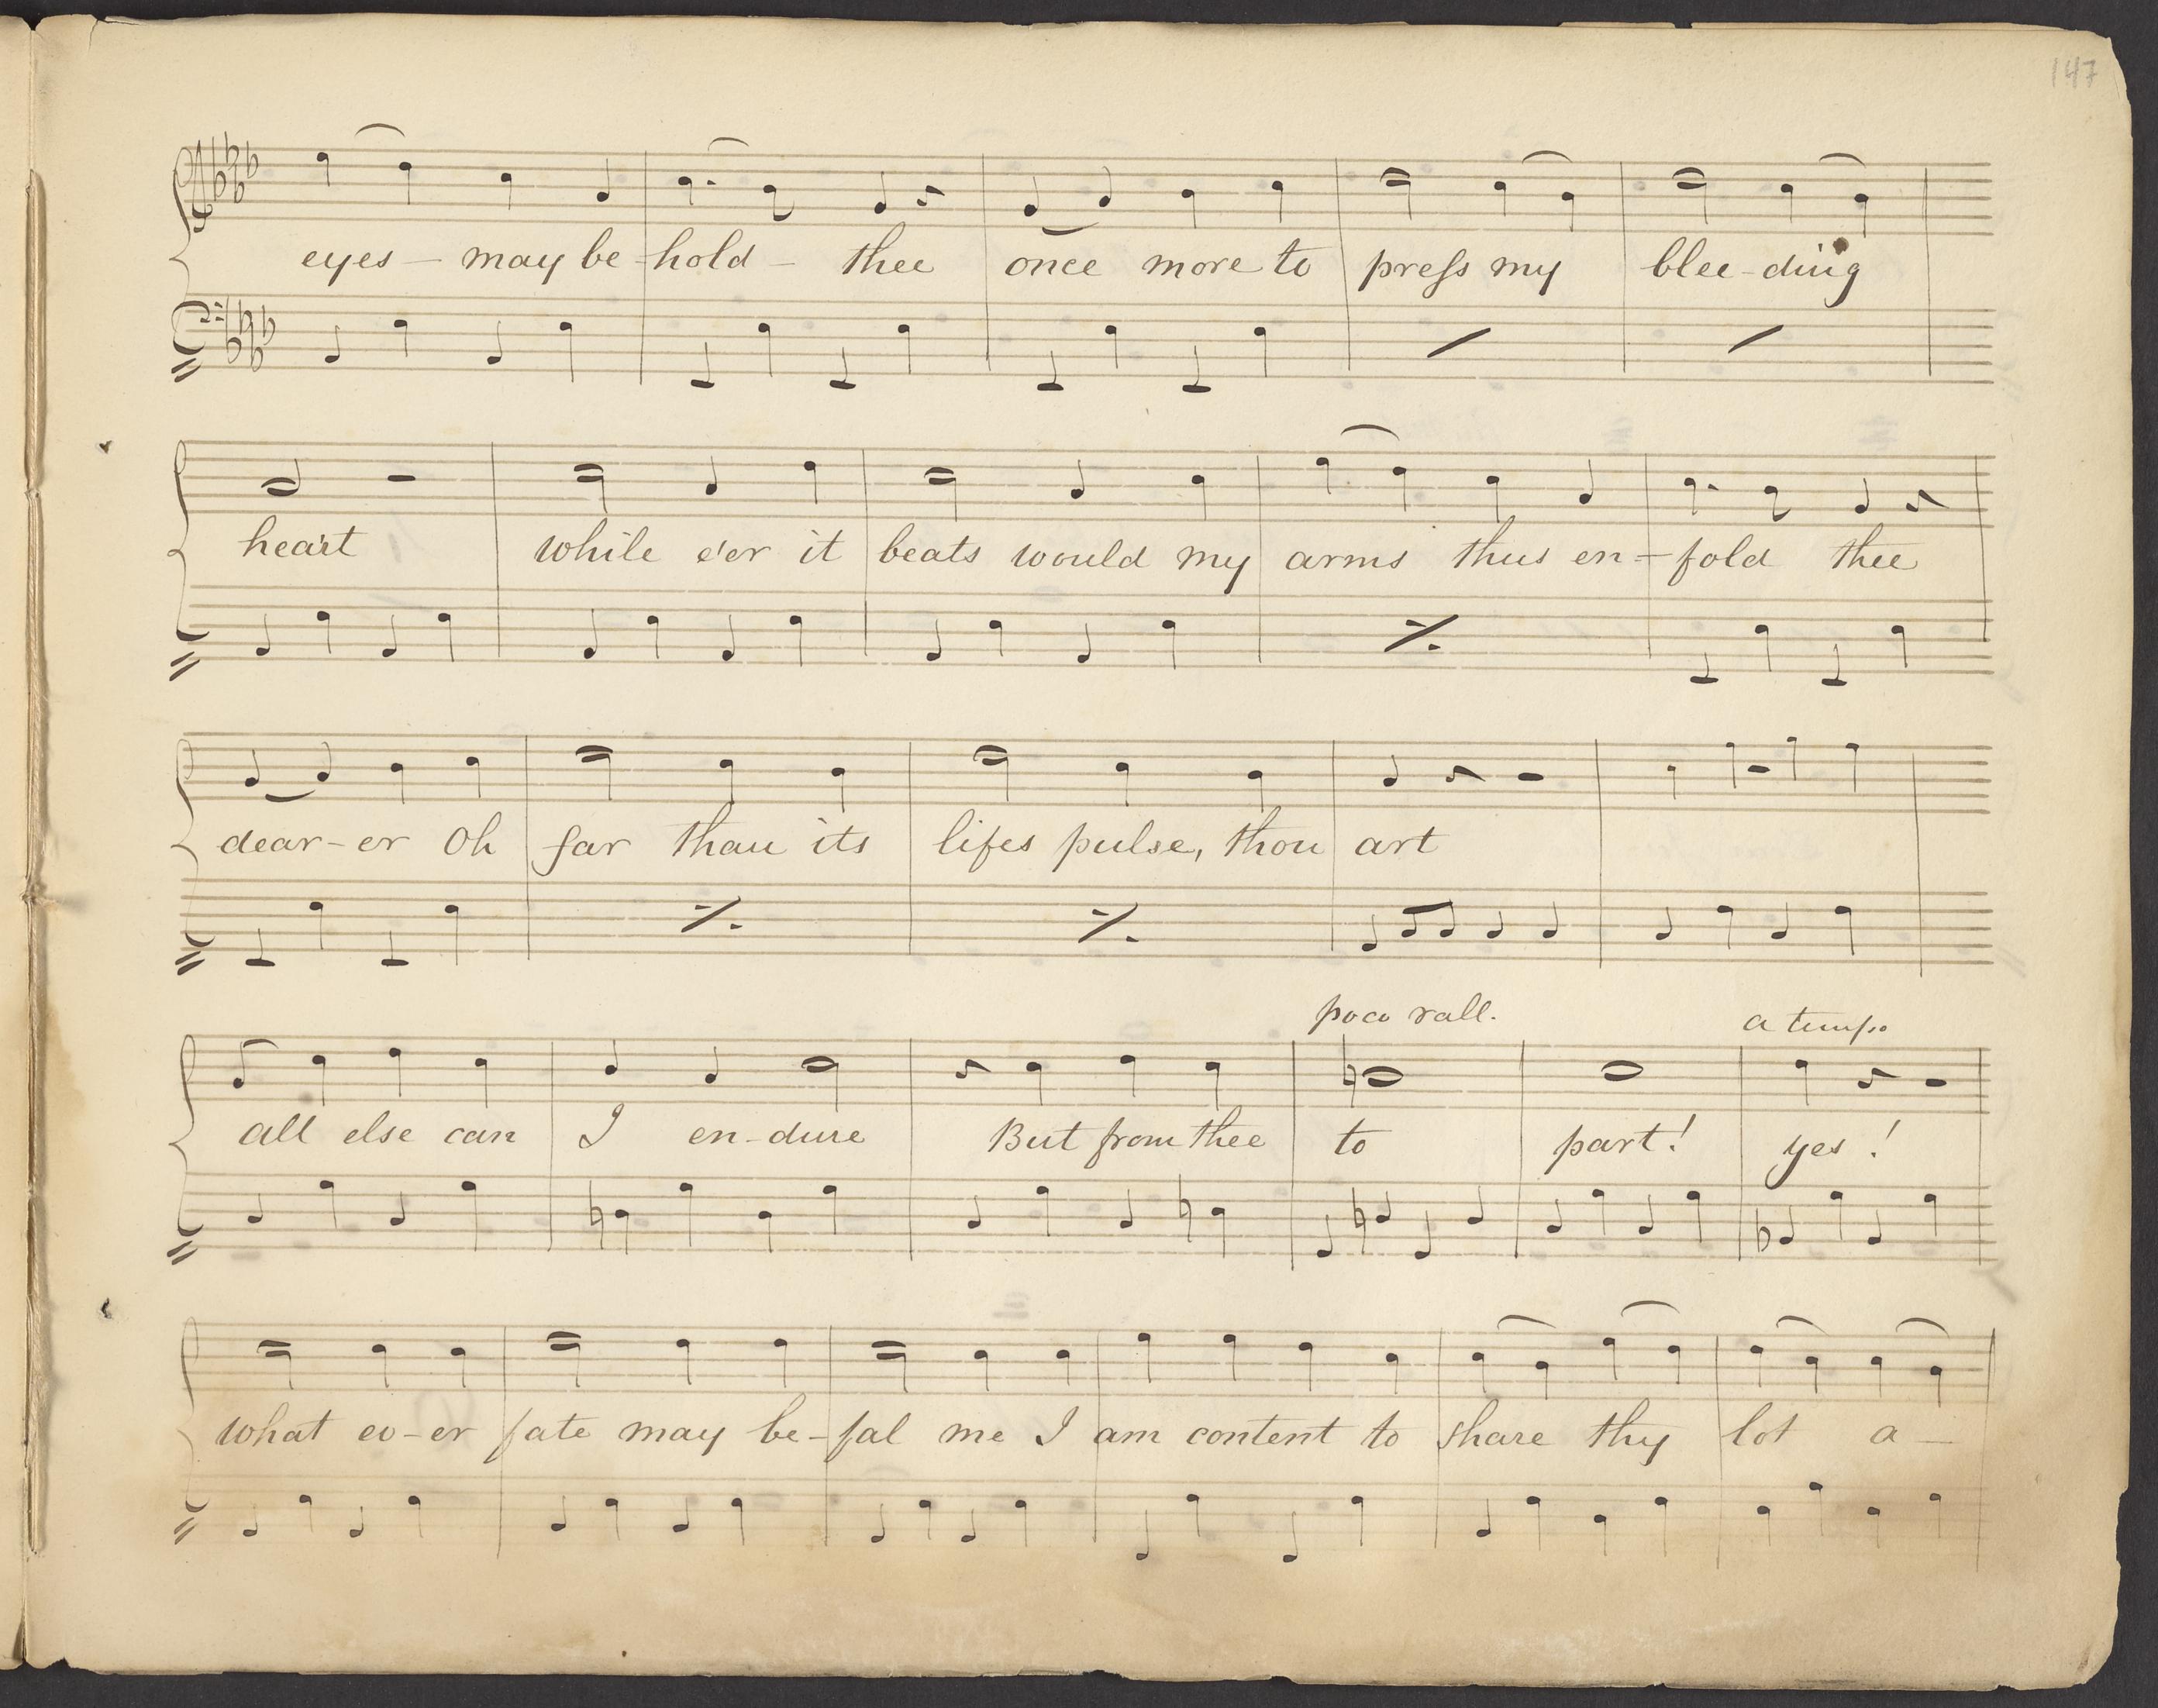 147
eyes – may be - hold – thee once more to preſs my blee - ding
heart while e'er it beats would my arms thus en - fold thee
dear - er Oh far than its lifes pulse, thou art
poco rall. a tempo
all else can I en - dure But from thee to part! yes!
what ev - er fate may be - fal me I am content to share thy lot a -